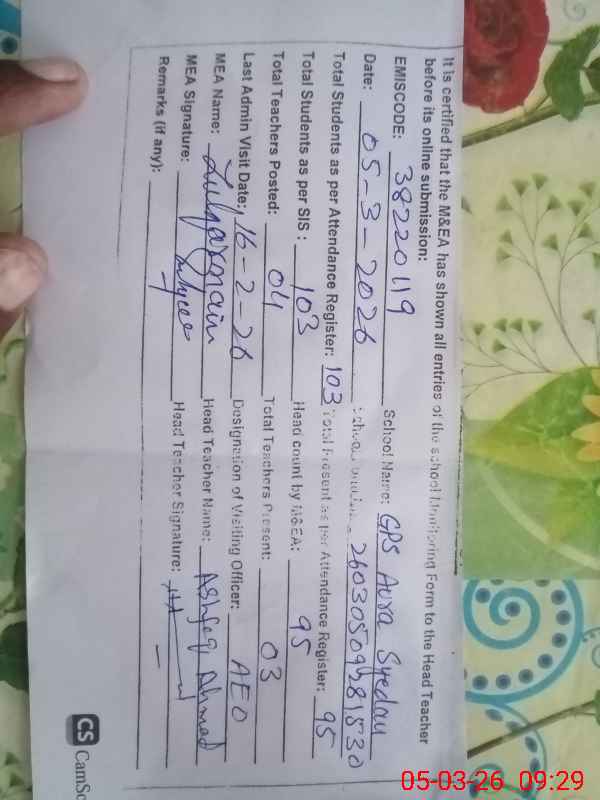 It is certified that the M&EA has shown all entries of the school Monitoring Form to the Head Teacher
before its online submission:
EMISCODE: 38220119 School Name: GPS Aura Syedan
Date: 05-3-2026 School 26030509281530
Total Students as per Attendance Register: 103 Total Present as per Attendance Register: 95
Total Students as per SIS: 103 Head count by M&EA: 95
Total Teachers Posted: 04 Total Teachers Present: 03
Last Admin Visit Date: 16-2-26 Designation of Visiting Officer: AEO
MEA Name: Zulqarnain Head Teacher Name: Ashfaq Ahmad
MEA Signature: Head Teacher Signature:
Remarks (if any): — —
CS CamSc
05-03-26 09:29